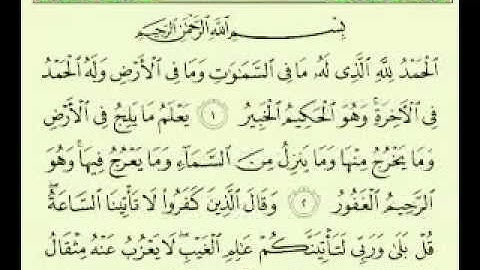 بِسْمِ ٱللَّهِ ٱلرَّحْمَٰنِ ٱلرَّحِيمِ
ٱلْحَمْدُ لِلَّهِ ٱلَّذِى لَهُۥ مَا فِى ٱلسَّمَٰوَٰتِ وَمَا فِى ٱلْأَرْضِ وَلَهُ ٱلْحَمْدُ
فِى ٱلْءَاخِرَةِ ۚ وَهُوَ ٱلْحَكِيمُ ٱلْخَبِيرُ ١ يَعْلَمُ مَا يَلِجُ فِى ٱلْأَرْضِ
وَمَا يَخْرُجُ مِنْهَا وَمَا يَنزِلُ مِنَ ٱلسَّمَآءِ وَمَا يَعْرُجُ فِيهَا ۚ وَهُوَ
ٱلرَّحِيمُ ٱلْغَفُورُ ٢ وَقَالَ ٱلَّذِينَ كَفَرُوا۟ لَا تَأْتِينَا ٱلسَّاعَةُ ۖ
قُلْ بَلَىٰ وَرَبِّى لَتَأْتِيَنَّكُمْ عَٰلِمِ ٱلْغَيْبِ ۖ لَا يَعْزُبُ عَنْهُ مِثْقَالُ